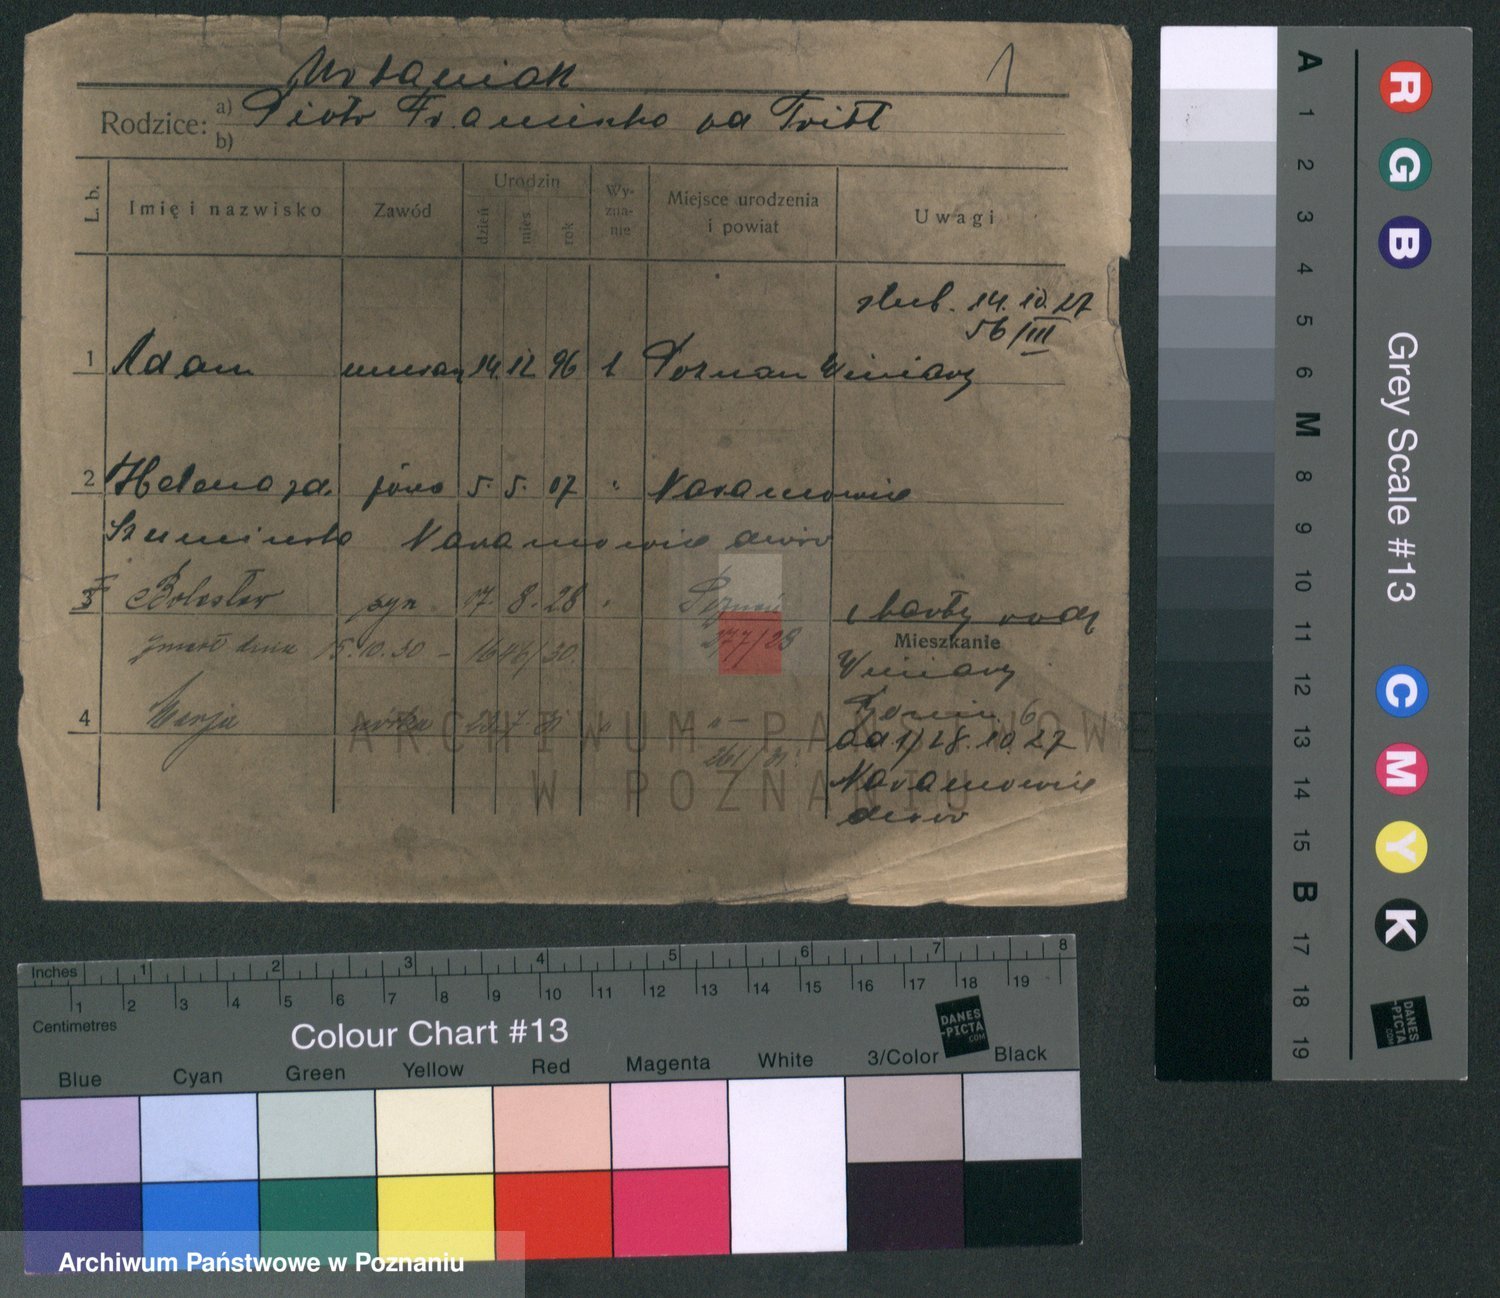 Urbaniak
1
Rodzice: a) Piotr Franciszka
b)
L. b.
Imię i nazwisko
Zawód
Urodzin
dzień
mies.
rok
Wy-
zna-
nie
Miejsce urodzenia
i powiat
Uwagi
14. 10. 27
56/III
1 Adam 14 12 96 Poznan Winiary
2 Helena 5. 5. 07 Naramowice
Naramowice dwór
3 Bolesław syn 17. 8. 28 Poznań
zmarł dnia 15.10.30 – 1646/30. 277/28
Mieszkanie
Winiary
6
4 Marja córka
261/31.
od 28. 10. 27
Naramowice
dwór
ARCHIWUM PAŃSTWOWE
W POZNANIU
Inches 1 2 3 4 5 6 7 8
1 2 3 4 5 6 7 8 9 10 11 12 13 14 15 16 17 18 19
Centimetres
Colour Chart #13
DANES
-PICTA
.COM
Blue Cyan Green Yellow Red Magenta White 3/Color Black
Archiwum Państwowe w Poznaniu
R G B Grey Scale #13 C M Y K
DANES
-PICTA
.COM
A 1 2 3 4 5 6 M 8 9 10 11 12 13 14 15 B 17 18 19